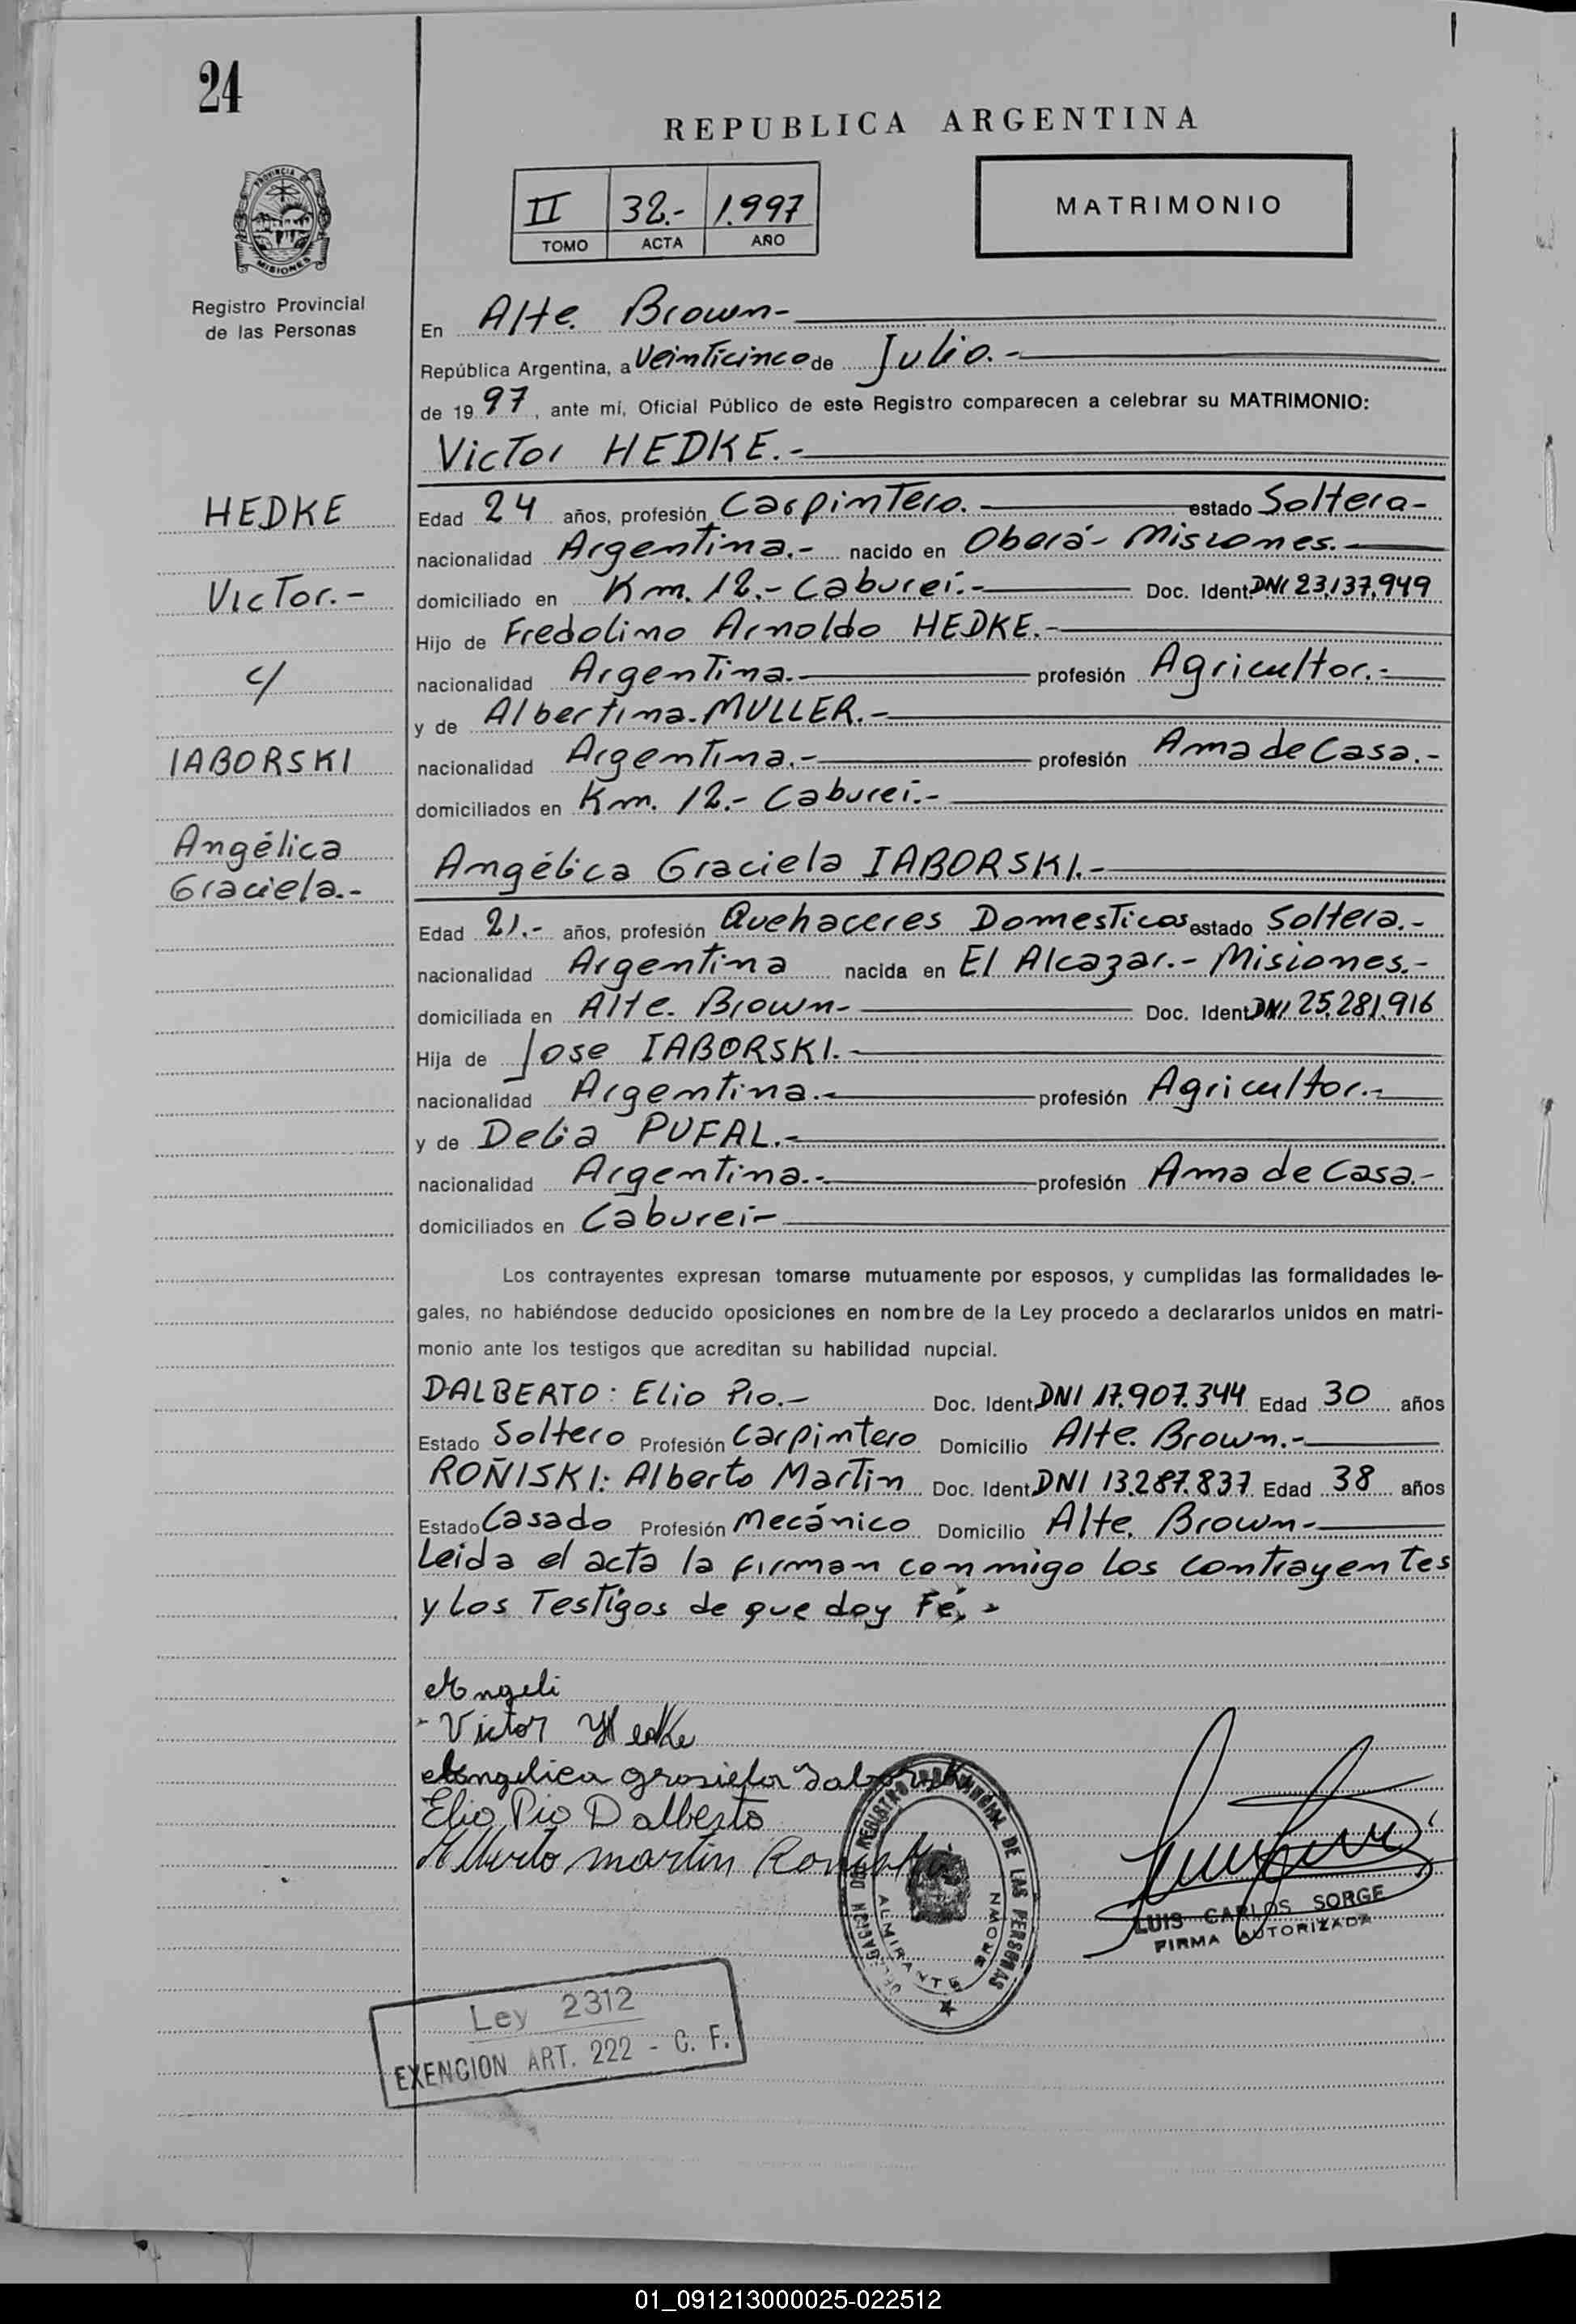 24
REPUBLICA ARGENTINA
II 32.- 1.997
TOMO ACTA AÑO
MATRIMONIO
PROVINCIA DE
MISIONES
Registro Provincial
de las Personas
En Alte. Brown-
República Argentina, a Veinticinco de Julio.-
de 1997, ante mí, Oficial Público de este Registro comparecen a celebrar su MATRIMONIO:
Victor HEDKE.-
HEDKE
Victor.-
c/
IABORSKI
Angélica
Graciela.-
Edad 24 años, profesión Carpintero. estado Soltera-
nacionalidad Argentina.- nacido en Oberá- Misiones.-
domiciliado en Km. 12.- Caburei.- Doc. Ident. DNI 23.137.949
Hijo de Fredolino Arnoldo HEDKE.-
nacionalidad Argentina.- profesión Agricultor.-
y de Albertina MULLER.-
nacionalidad Argentina.- profesión Ama de Casa.-
domiciliados en Km. 12.- Caburei.-
Angélica Graciela IABORSKI.-
Edad 21.- años, profesión Quehaceres Domesticos estado Soltera.-
nacionalidad Argentina nacida en El Alcazar.- Misiones.-
domiciliada en Alte. Brown- Doc. Ident. DNI 25.281.916
Hija de Jose IABORSKI.-
nacionalidad Argentina.- profesión Agricultor.-
y de Delia PUFAL.-
nacionalidad Argentina.- profesión Ama de Casa.-
domiciliados en Caburei-
Los contrayentes expresan tomarse mutuamente por esposos, y cumplidas las formalidades le-
gales, no habiéndose deducido oposiciones en nombre de la Ley procedo a declararlos unidos en matri-
monio ante los testigos que acreditan su habilidad nupcial.
DALBERTO: Elio Pio.- Doc. Ident. DNI 17.907.344 Edad 30 años
Estado Soltero Profesión Carpintero Domicilio Alte. Brown.-
ROÑISKI: Alberto Martin Doc. Ident. DNI 13.287.837 Edad 38 años
Estado Casado Profesión Mecánico Domicilio Alte. Brown-
Leida el acta la firman conmigo los contrayentes
y los Testigos de que doy Fé.-
Angeli
- Victor Hedke
Angelica grasiela Iaborski
Elio Pio Dalberto
Alberto martin Roniski
REGISTRO PROVINCIAL DE LAS PERSONAS
ALMIRANTE BROWN
LUIS CARLOS SORGE
FIRMA AUTORIZADA
Ley 2312
EXENCION ART. 222 - C. F.
01_091213000025-022512